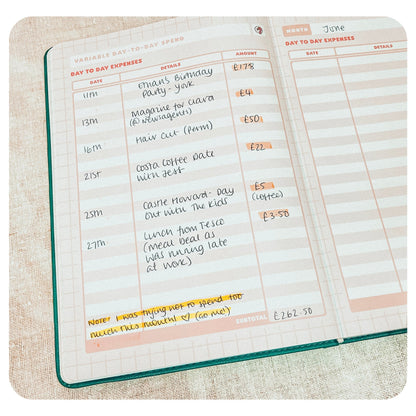 VARIABLE DAY-TO-DAY SPEND
DAY TO DAY EXPENSES
DATE DETAILS AMOUNT
11th Ethan's Birthday £178
Party - York
13th Magazine for Clara £4
(@ Newsagents)
16th Hair Cut (Perm) £50
21st Costa Coffee Date £22
with Jest
25th Castle Howard - Day £5
out with the kids (coffee)
27th Lunch from Tesco £3.50
(meal deal as
was running late
at work)
Note: I was trying not to spend too
much this month! ♡ (Go me!)
SUBTOTAL £262.50
MONTH June
DAY TO DAY EXPENSES
DATE DETAILS